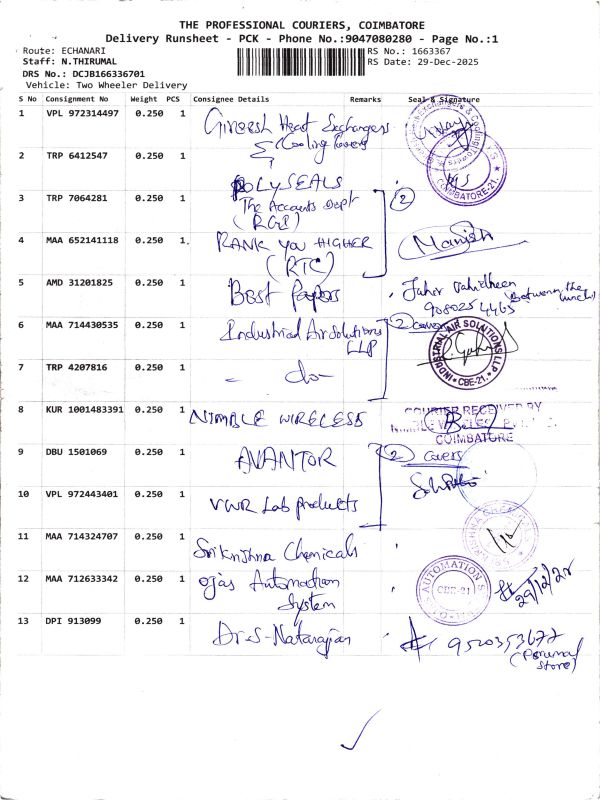 THE PROFESSIONAL COURIERS, COIMBATORE
Delivery Runsheet - PCK - Phone No.:9047080280 - Page No.:1
Route: ECHANARI RS No.: 1663367
Staff: N.THIRUMAL RS Date: 29-Dec-2025
DRS No.: DCJB166336701
Vehicle: Two Wheeler Delivery
S No Consignment No Weight PCS Consignee Details Remarks Seal & Signature
1 VPL 972314497 0.250 1 Heat Exchangers
& Cooling Towers
2 TRP 6412547 0.250 1 POLYSEALS
COIMBATORE-21.
3 TRP 7064281 0.250 1 The Accounts Dept 2
(RGI)
4 MAA 652141118 0.250 1 RANK YOU HIGHER Manish
(RTC)
5 AMD 31201825 0.250 1 Best Papers
9080254465 (Between the lunch)
6 MAA 714430535 0.250 1 Industrial Air Solutions 2 covers
LLP
INDUSTRIAL AIR SOLUTIONS LLP
CBE-21.
7 TRP 4207816 0.250 1 - do -
8 KUR 1001483391 0.250 1 NIMBLE WIRELESS COURIER RECEIVED BY
COIMBATORE
9 DBU 1501069 0.250 1 AVANTOR 2 covers
10 VPL 972443401 0.250 1 VWR Lab products
11 MAA 714324707 0.250 1 Srikrishna Chemicals
12 MAA 712633342 0.250 1 Ojas Automation
System
AUTOMATION
CBE-21
29/12/25
13 DPI 913099 0.250 1 Dr.S-Natarajan 9520353677
(Perumal
store)